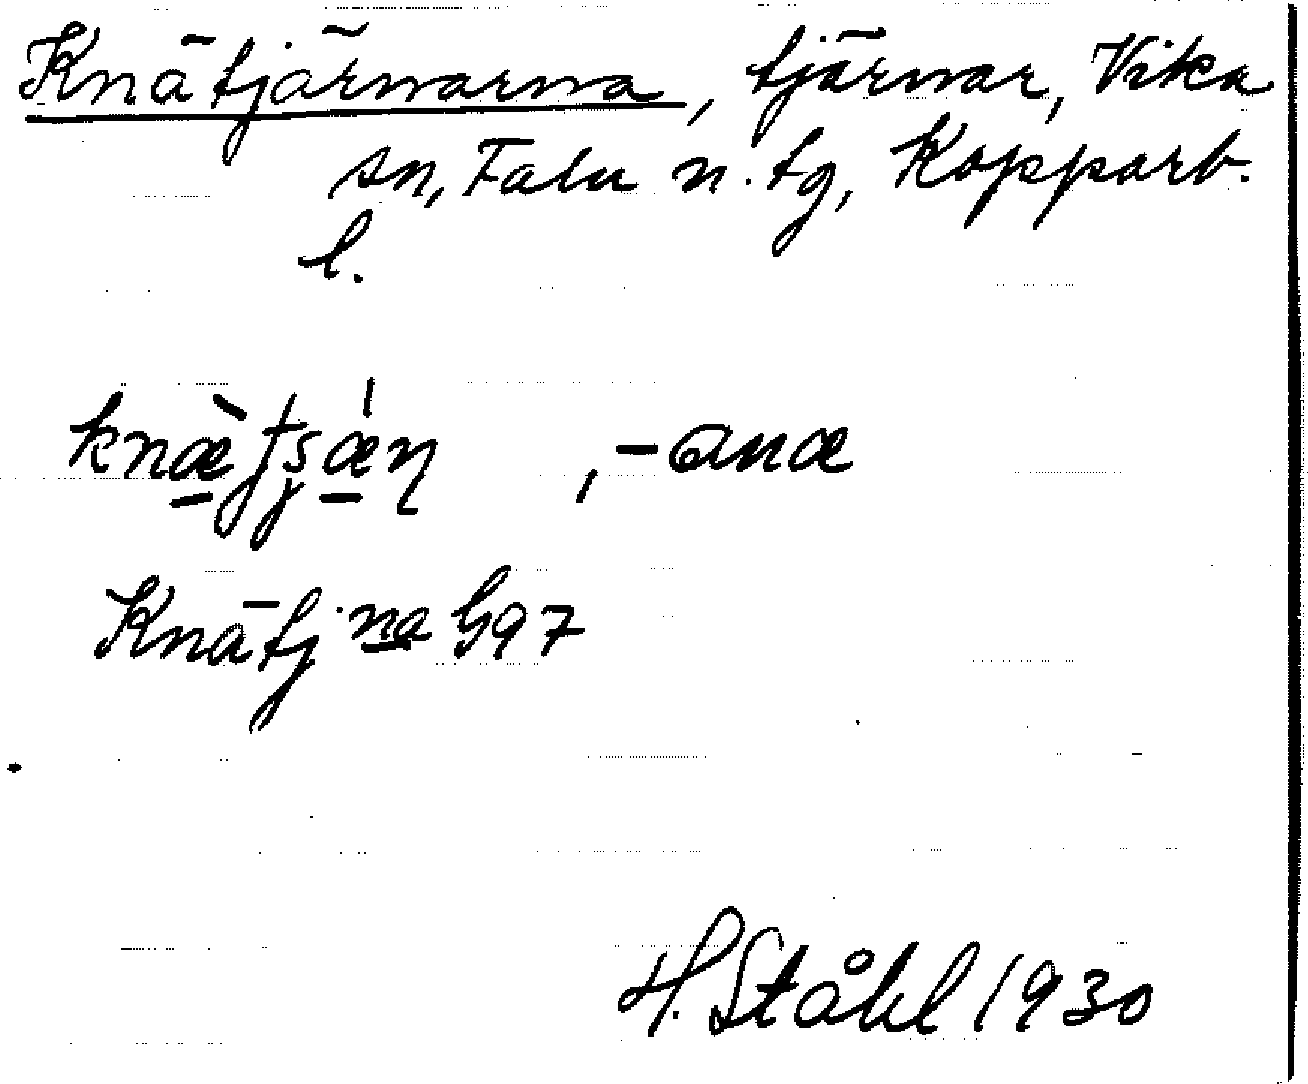 Knätjärnarna, tjärnar, Vika
sn, Falu n. tg, Kopparb.
l.
knæ̠̀tʂǽ̠ɳ , -ɑnɑ
Knätj:na G97
H. Ståhl 1930